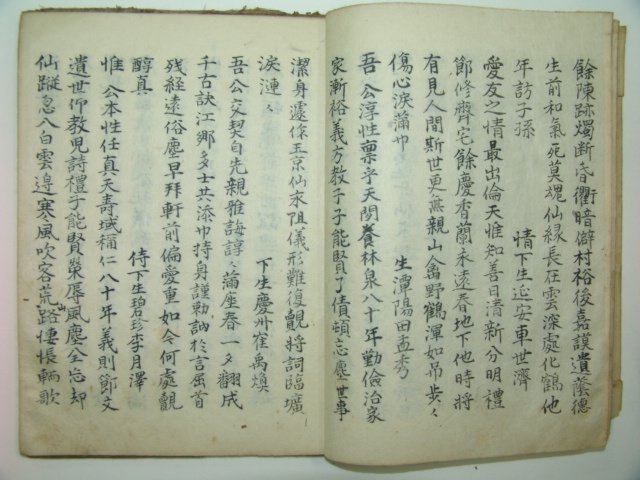 餘陳跡燭断昏衢暗僻村裕後嘉謨遺蔭德
生前和氣死莫魂仙緣長在雲深處化鶴他
年訪子孫
情下生延安車世濟
愛友之情最出倫天惟知善日清新分明禮
節修齊宅餘慶香蘭永遠春地下他時將
有見人間斯世更無親山禽野鶴渾如吊步々
傷心淚滿巾
生潭陽田孟秀
吾 公淳性稟乎天閒養林泉八十年勤儉治家
家漸裕義方教子子能賢了債頓忘塵世事
潔身遽作玉京仙水阻儀形難復覿將詞臨壙
淚漣々
下生慶州崔禹煥
吾公交契自先親雅誨諄々滿座春一夕翻成
千古訣江鄉多士共添巾持身謹勅訥於言屈首
残経遠俗塵早拜軒前偏愛重如今何處覿
醇真
侍下生碧珍李月澤
惟 公本性任真天壽域稱仁八十年義則節文
遺世仰教児詩禮子能賢榮辱風塵全忘却
仙蹤忽入白雲邉寒風吹客荒山路悽悵輀歌